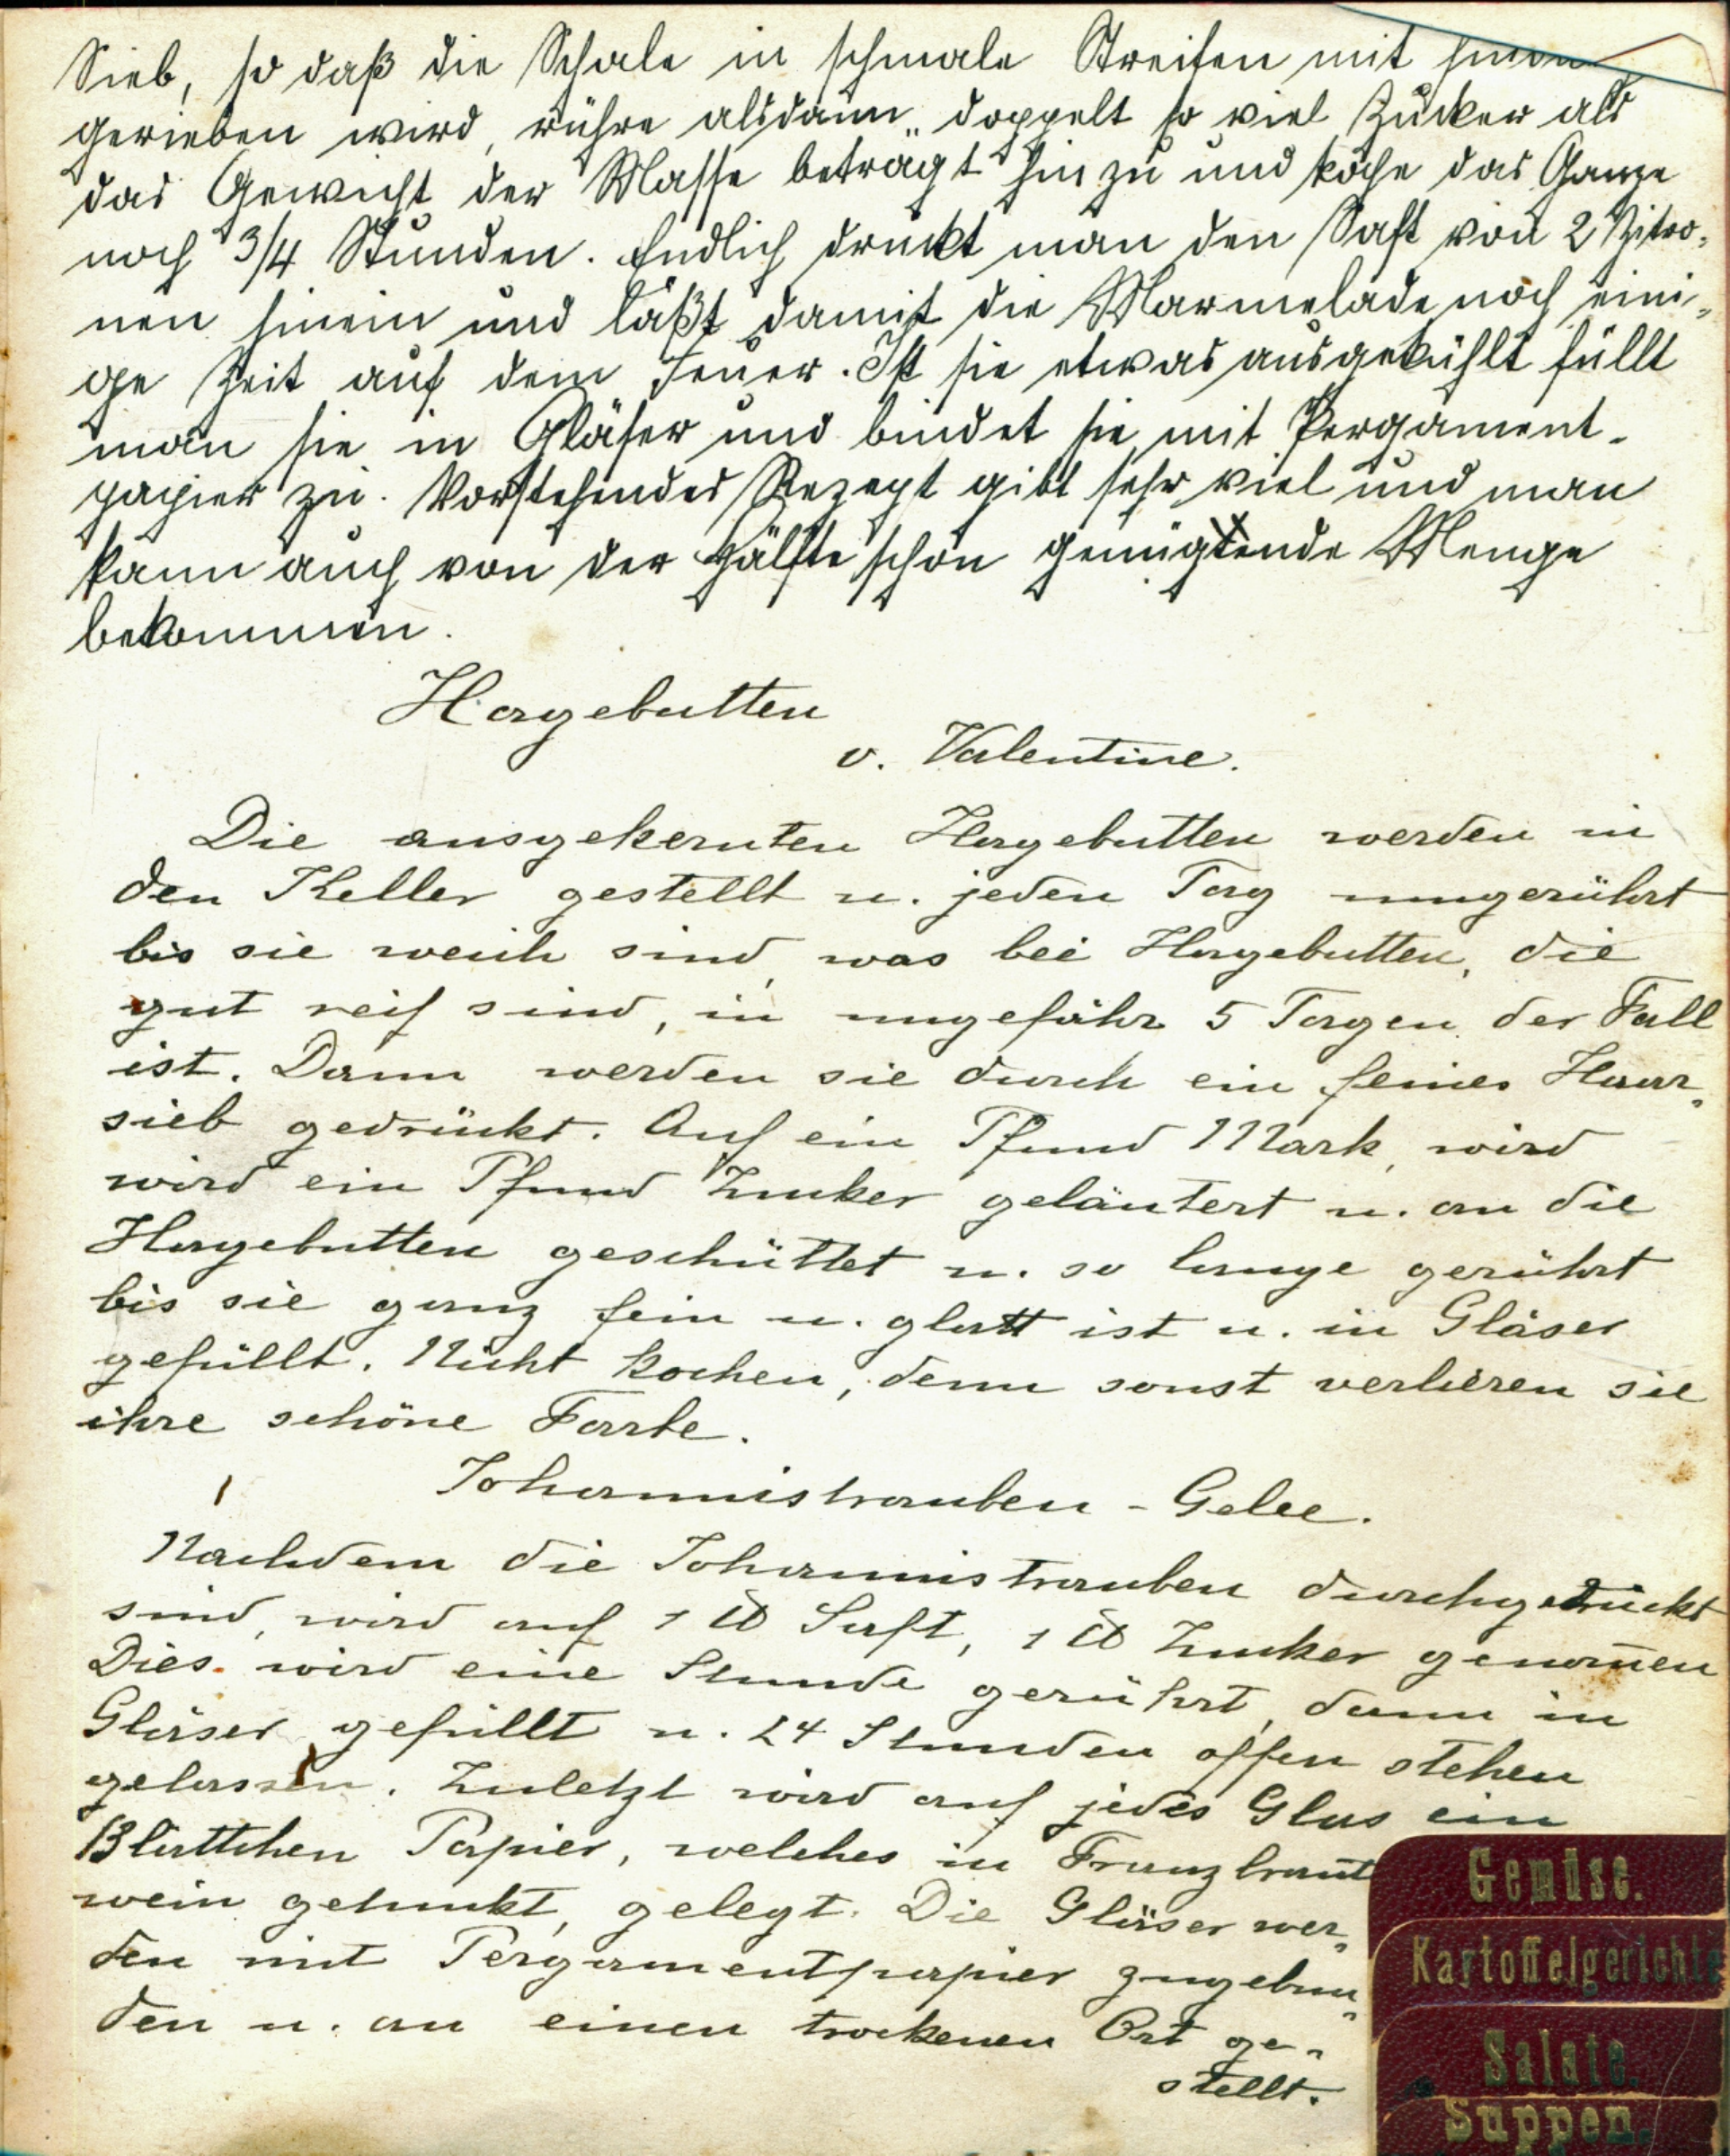 Sieb, so daß die Schale in schmale Streifen mit hinein
gerieben wird, rühre alsdann „doppelt so viel Zucker als
das Gewicht der Masse beträgt“ hinzu und koche das Ganze
noch 3/4 Stunden. Endlich drückt man den Saft von 2 Zitro-
nen hinein und läßt damit die Marmelade noch eini-
ge Zeit auf dem Feuer. Ist sie etwas ausgekühlt füllt
man sie in Gläser und bindet sie mit Pergament-
papier zu. Vorstehendes Rezept gibt sehr viel und man
kann auch von der Hälfte schon genügende Menge
bekommen.
Hagebutten
v. Valentine.
Die ausgekernten Hagebutten werden in
den Keller gestellt u. jeden Tag umgerührt
bis sie weich sind, was bei Hagebutten, die
gut reif sind, in ungefähr 5 Tagen der Fall
ist. Dann werden sie durch ein feines Haar-
sieb gedrückt. Auf ein Pfund Mark, wird
wird ein Pfund Zucker geläutert u. an die
Hagebutten geschüttet u. so lange gerührt
bis sie ganz fein u. glatt ist u. in Gläser
gefüllt. Nicht kochen, denn sonst verlieren sie
ihre schöne Farbe.
Johannistrauben - Gelee.
Nachdem die Johannistrauben durchgedrückt
sind, wird auf 1 ℔ Saft, 1 ℔ Zucker genom̄en
Dies wird eine Stunde gerührt, dann in
Gläser gefüllt u. 24 Stunden offen stehen
gelassen. Zuletzt wird auf jedes Glas ein
Blättchen Papier, welches in Franzbrant
wein getunkt, gelegt. Die Gläser wer-
den mit Pergamentpapier zugebun-
den u. an einen trockenen Ort ge-
stellt.
Gemüse.
Kartoffelgerichte
Salate.
Suppen.